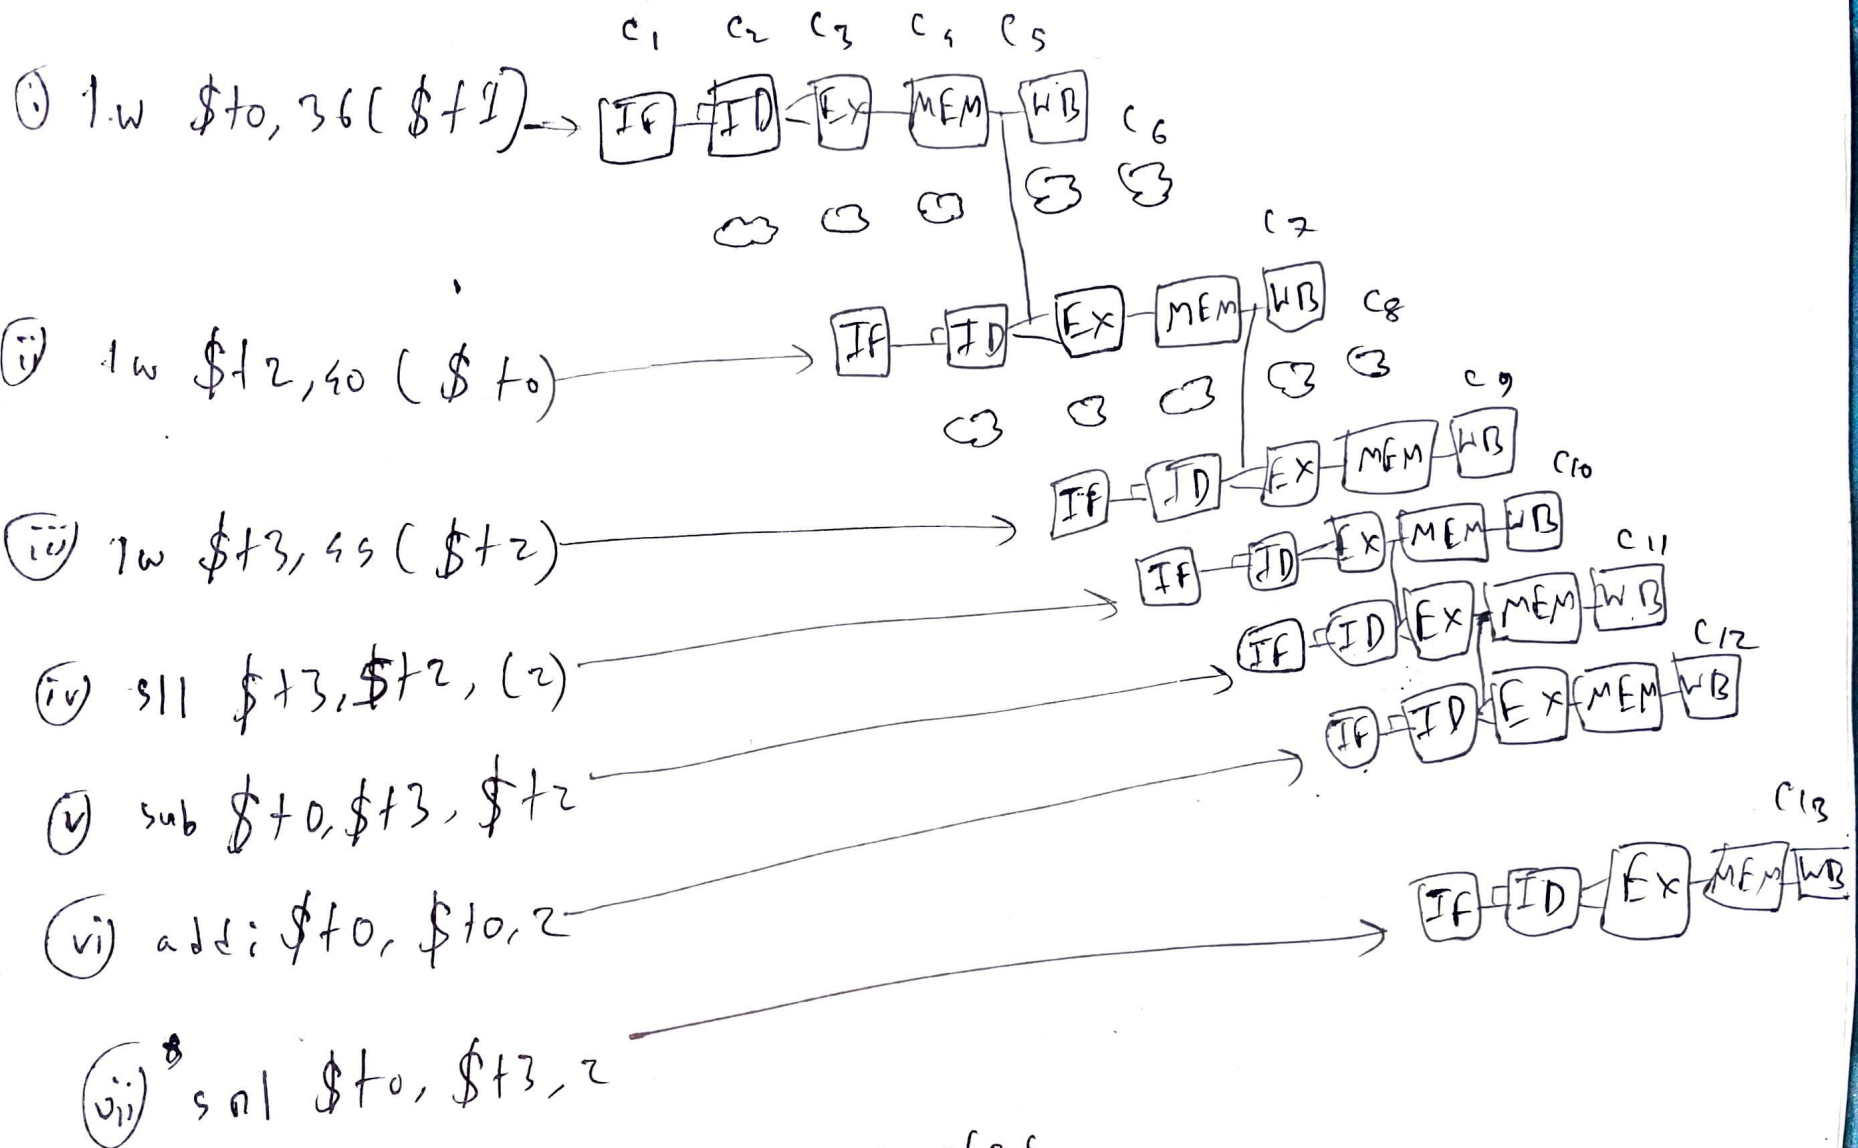 C1 C2 C3 C4 C5
(i) lw $t0, 36($t1) → IF ID EX MEM WB C6
C7
(ii) lw $t2, 40($t0) → IF ID EX MEM WB C8
C9
(iii) lw $t3, 44($t2) → IF ID EX MEM WB C10
(iv) sll $t3, $t2, (2) → IF ID EX MEM WB C11
(v) sub $t0, $t3, $t2 → IF ID EX MEM WB C12
(vi) addi $t0, $t0, 2 → IF ID EX MEM WB
C13
(vii) srl $t0, $t3, 2 → IF ID EX MEM WB